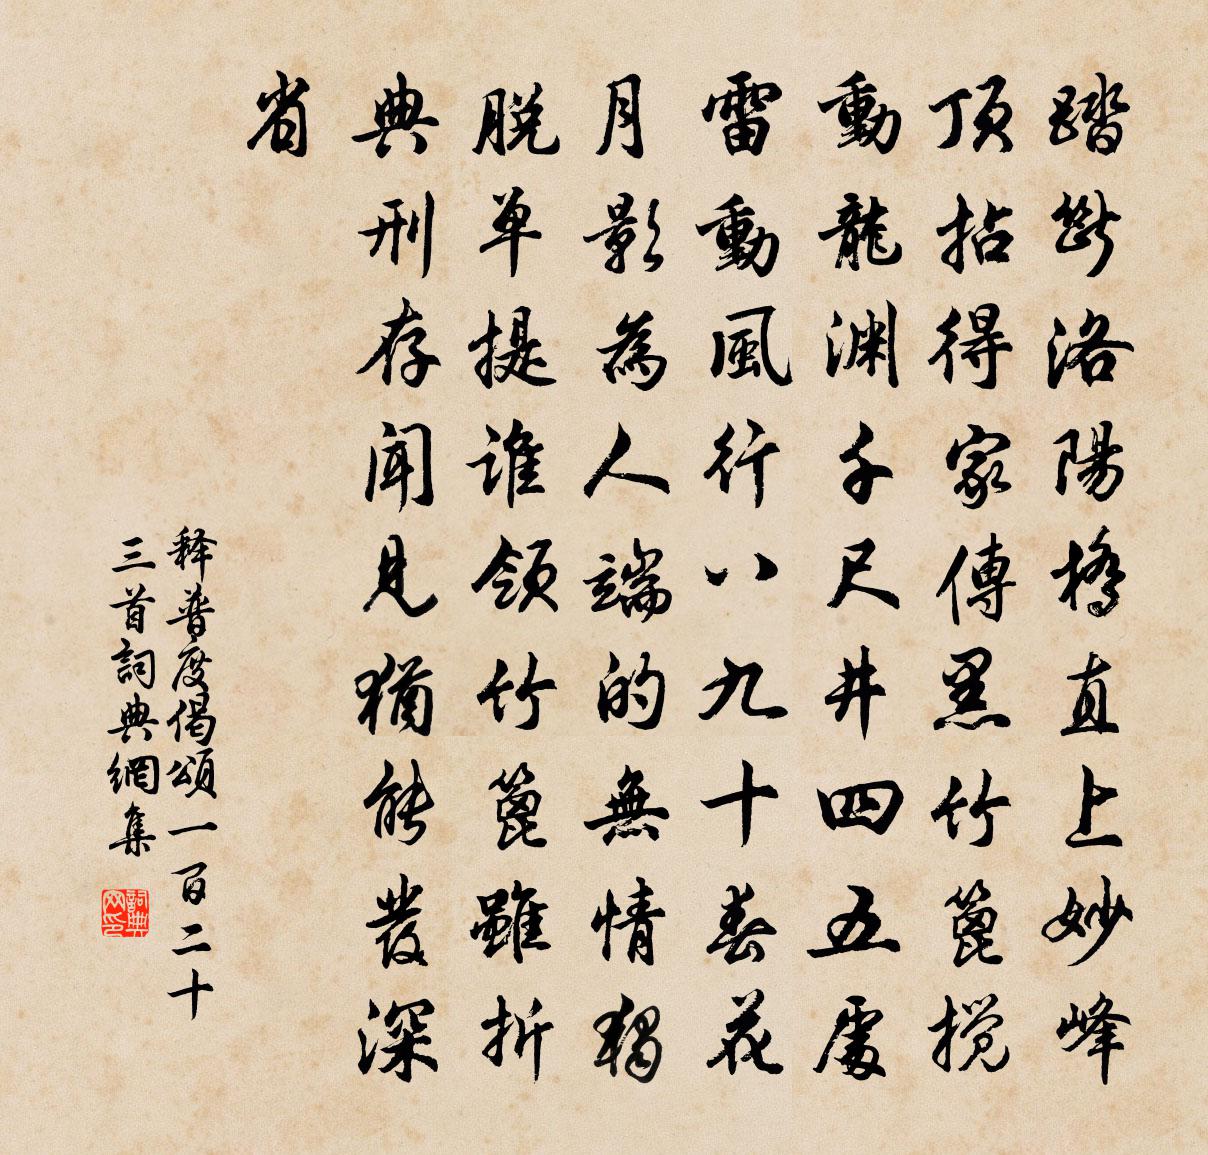 踏斷洛陽橋直上妙峰
頂拈得家傳黑竹篦攪
動龍渊千尺井四五處
雷動風行八九十春花
月影為人端的無情獨
脱单提誰領竹篦雖折
典刑存聞見猶能發深
省
释普度偈頌一百二十
三首詞典網集
詞典网印